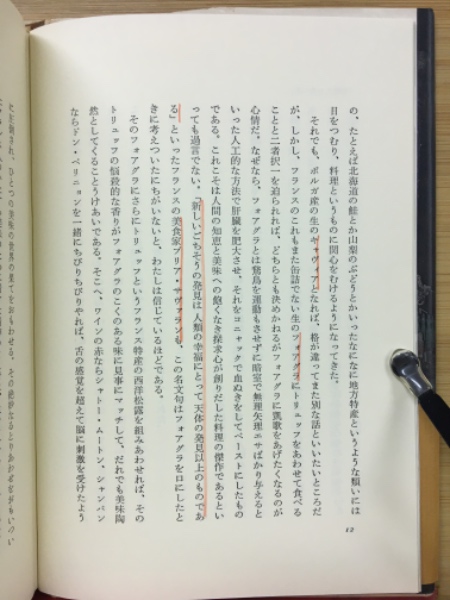 の、たとえば北海道の鮭とか山梨のぶどうとかいったなにに地方特産というような類いには
目をつむり、料理というものに関心をむけるようになってきた。
それでも、ボルガ産の生のキャヴィアとなれば、格が違ってまた別な話といいたいところだ
が、しかし、フランスのこれもまた缶詰でない生のフォアグラにトリュッフをあわせて食べる
ことと二者択一を迫られれば、どちらとも決めかねるがフォアグラに凱歌をあげたくなるのが
心情だ。なぜなら、フォアグラとは鵞鳥を運動もさせずに暗室で無理矢理エサばかり与えると
いった人工的な方法で肝臓を肥大させ、それをコニャックで血ぬきをしてペーストにしたもの
である。これこそは人間の知恵と美味への飽くなき探求心が創りだした料理の傑作であるとい
っても過言でない。「新しいごちそうの発見は人類の幸福にとって天体の発見以上のものであ
る」といったフランスの美食家ブリア・サヴァランも、この名文句はフォアグラを口にしたと
きに考えついたにちがいないと、わたしは信じているほどである。
そのフォアグラにさらにトリュッフというフランス特産の西洋松露を組みあわせれば、その
トリュッフの悩殺的な香りがフォアグラのこくのある味に見事にマッチして、だれでも美味陶
然としてくることうけあいである。そこへ、ワインの赤ならシャトー・ムートン、シャンパン
ならドン・ペリニョンを一緒にちびりちびりやれば、舌の感覚を超えて脳に刺激を受けたよう
12